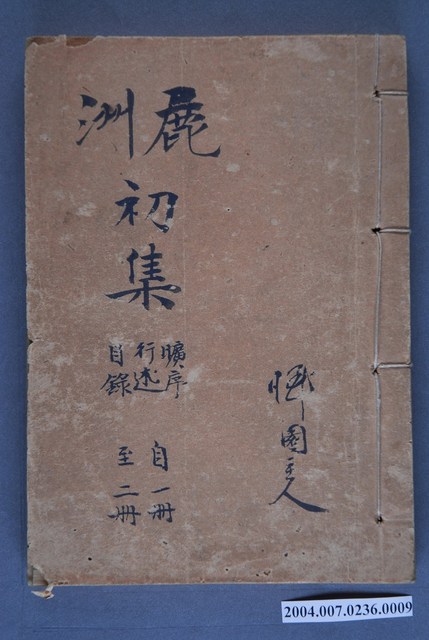 鹿洲
初集
曠序
行述
目錄
自一冊
至二冊
園主人
2004.007.0236.0009